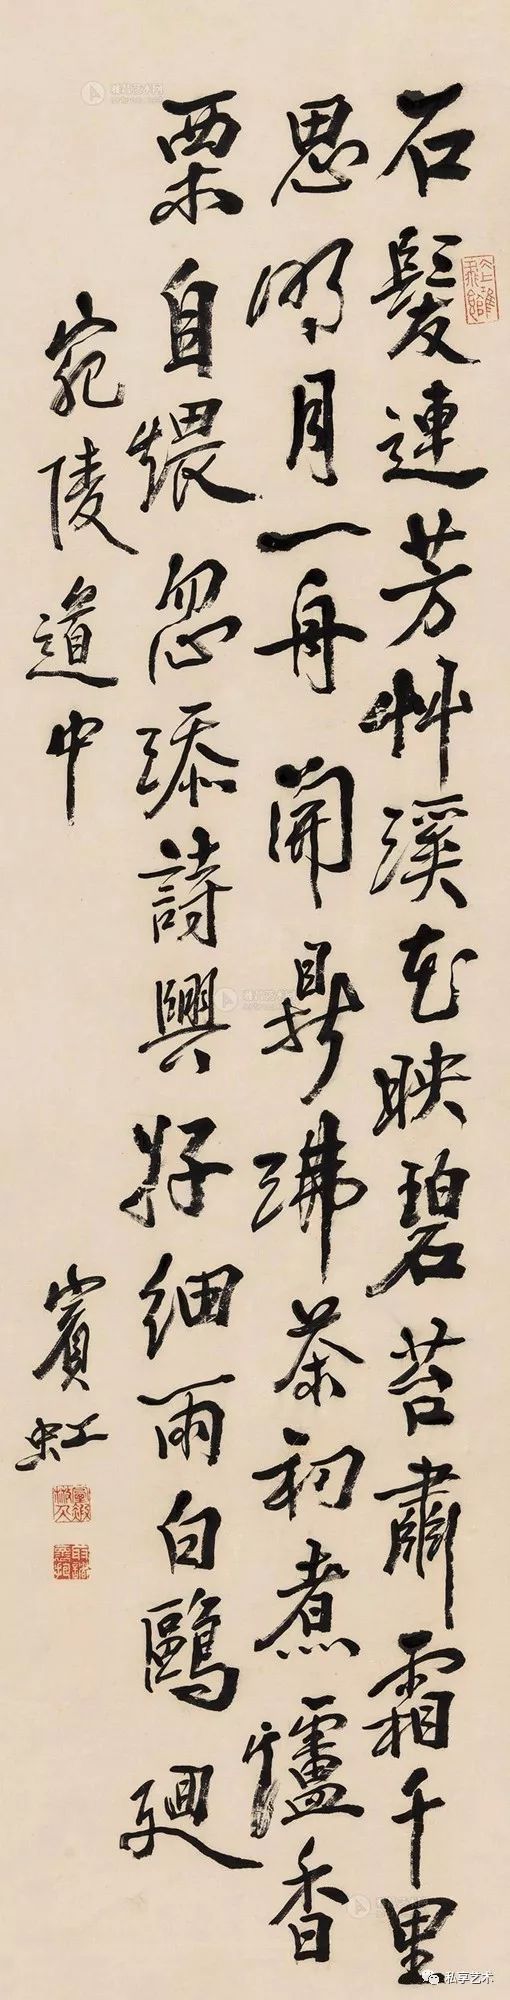 石髮連芳艸溪花映碧苔肅霜千里
思明月一舟開鼎沸茶初煮爐香
栗自煨忽添詩興好細雨白鷗迴
宛陵道中
賓虹
私享艺术